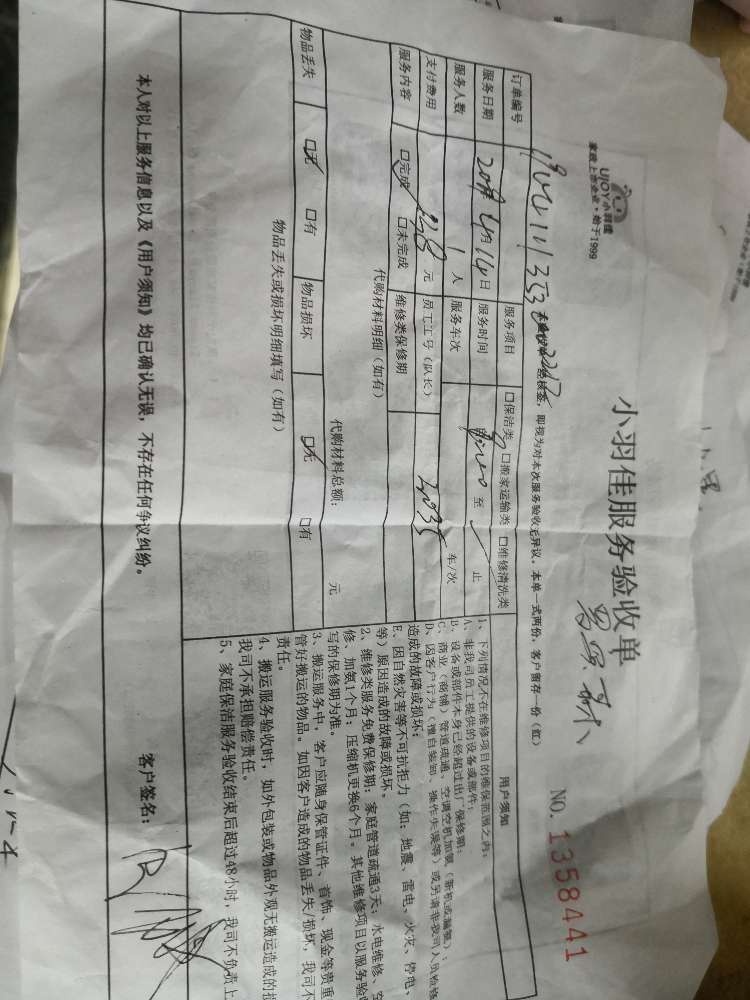 UJOY小羽佳
家政上市企业·始于1999
小羽佳服务验收单
NO. 1358441
本验收单一经核签，即视为对本次服务验收无异议，本单一式两份，客户留存一份（红）
订单编号
服务项目 □保洁类 □搬家运输类 □维修清洗类
服务日期 月14日 服务时间 至 止
服务人数 1 人 服务车次 车/次
支付费用 元 员工工号（队长）
服务内容 □完成 □未完成 维修类保修期
代购材料明细（如有）
代购材料总额： 元
物品丢失 □无 □有 物品损坏 □无 □有
物品丢失或损坏明细填写（如有）
用户须知
1、下列情况不在维修项目的维保范围之内：
A、非我司员工提供的设备或部件；
B、设备或部件本身已经超过出厂保修期；
C、商业（商铺）管道疏通、空调空机加氨（新机或漏氨）；
D、因客户行为（擅自装卸、操作失误等）或另请非我司人员检修
造成的故障或损坏；
E、因自然灾害等不可抗拒力（如：地震、雷电、火灾、停电、
等）原因造成的故障或损坏。
2、维修类服务免费保修期：家庭管道疏通3天；水电维修、空
修、加氨1个月；压缩机更换6个月。其他维修项目以服务验收
写的保修期为准。
3、搬运服务中，客户应随身保管证件、首饰、现金等贵重
管好搬运的物品。如因客户造成的物品丢失/损坏，我司不
责任。
4、搬运服务验收时，如外包装或物品外观无搬运造成的损
我司不承担赔偿责任。
5、家庭保洁服务验收结束后超过48小时，我司不负责上
本人对以上服务信息以及《用户须知》均已确认无误，不存在任何争议纠纷。
客户签名：